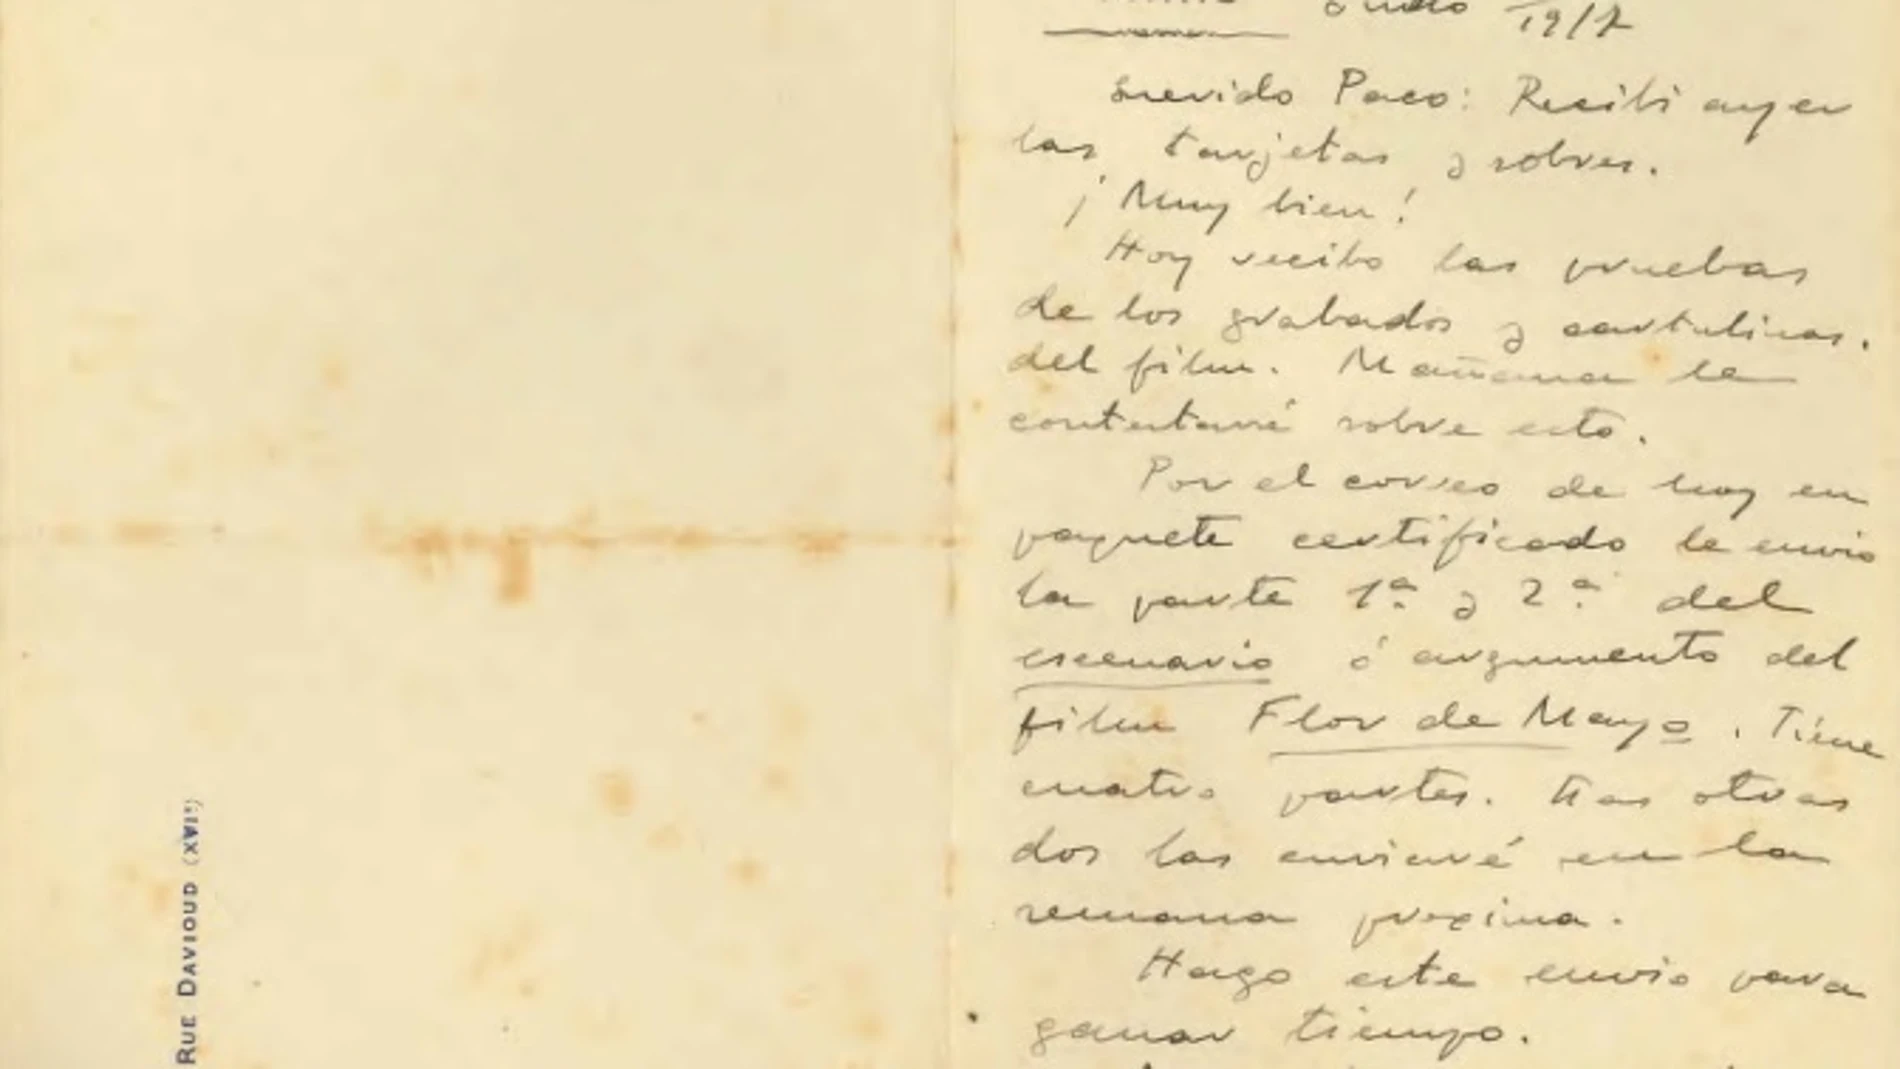 RUE DAVIOUD (XVIe)
1917
Querido Paco: Recibi ayer
las tarjetas y sobres.
¡Muy bien!
Hoy recibo las pruebas
de los grabados y cartulinas.
del film. Mañana le
contestaré sobre esto.
Por el correo de hoy en
paquete certificado le envio
la parte 1ª y 2ª del
escenario ó argumento del
film Flor de Mayo. Tiene
cuatro partes. Las otras
dos las enviaré en la
semana proxima.
Hago este envio para
ganar tiempo.